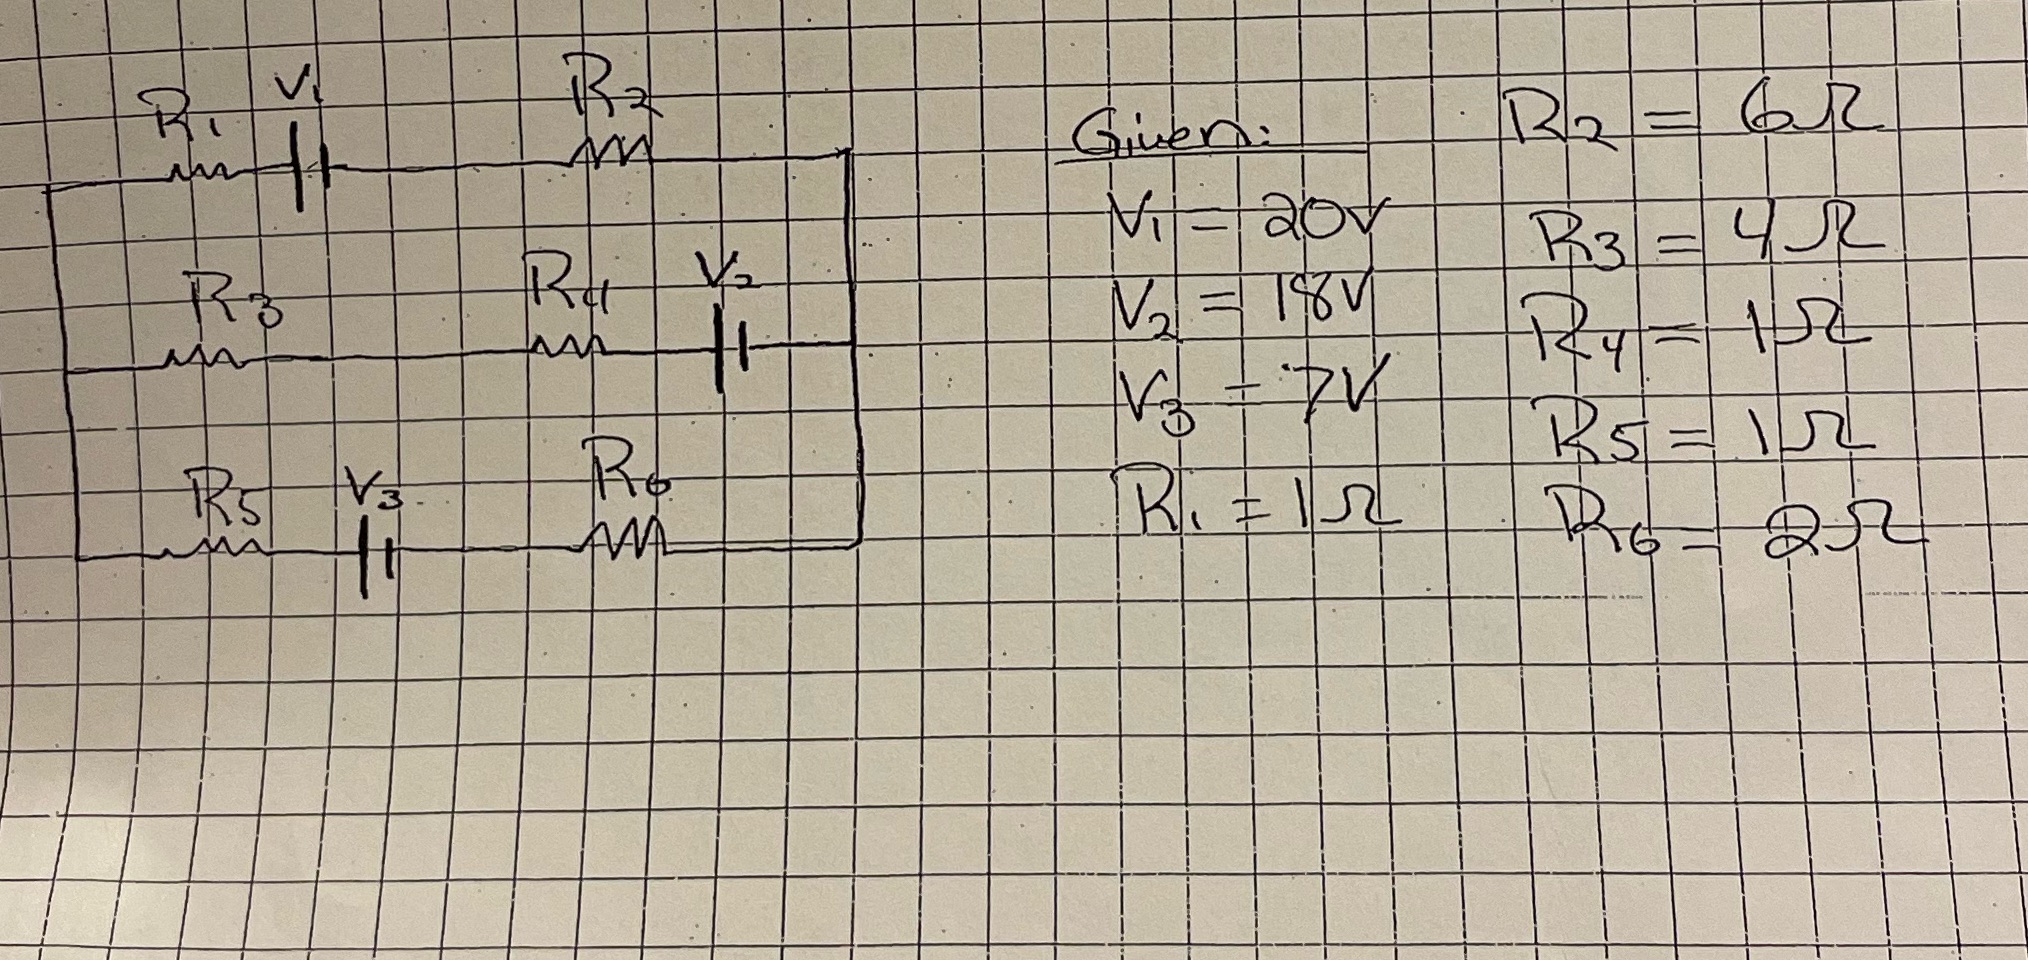 R1 V1 R2
R3 R4 V2
R5 V3 R6
Given:
V1 = 20V
V2 = 18V
V3 = 7V
R1 = 1Ω
R2 = 6Ω
R3 = 4Ω
R4 = 1Ω
R5 = 1Ω
R6 = 2Ω